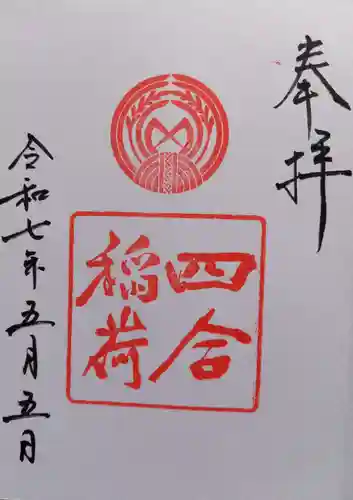 奉拝
四合
稲荷
令和七年五月五日